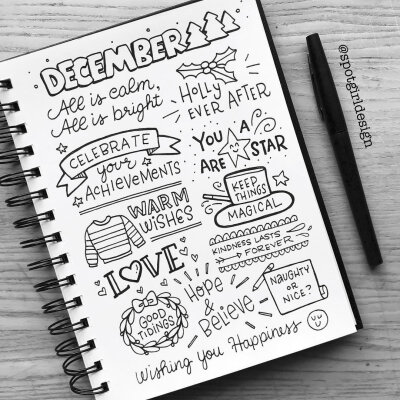 DECEMBER
All is calm,
All is bright
HOLLY
EVER AFTER
CELEBRATE
your
ACHIEVEMENTS
YOU
ARE
A
STAR
WARM
WISHES
KEEP
THINGS
MAGICAL
KINDNESS LASTS
FOREVER
LOVE
GOOD
TIDINGS
HOPE
&
BELIEVE
NAUGHTY
OR
NICE?
Wishing you Happiness
@spotgirldesign